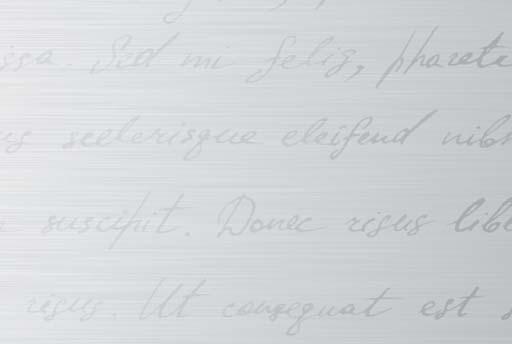 ssa. Sed mi felis, phareta
us scelerisque eleifend nibh
suscipit. Donec risus libe
risus. Ut consequat est